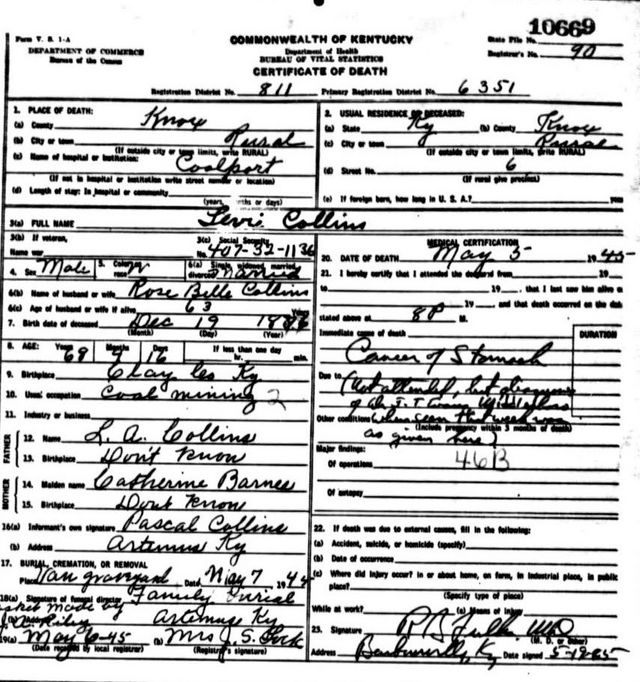 10669
Form V. S. 1-A
DEPARTMENT OF COMMERCE
Bureau of the Census
COMMONWEALTH OF KENTUCKY
Department of Health
BUREAU OF VITAL STATISTICS
CERTIFICATE OF DEATH
State File No.
Registrar's No. 90
Registration District No. 811 Primary Registration District No. 6351
1. PLACE OF DEATH:
(a) County Knox
(b) City or town Rural
(If outside city or town limits, write RURAL)
(c) Name of hospital or institution: Coalport
(If not in hospital or institution write street number or location)
(d) Length of stay: In hospital or community
(years, months or days)
2. USUAL RESIDENCE OF DECEASED:
(a) State Ky (b) County Knox
(c) City or town Rural
(If outside city or town limits, write RURAL)
(d) Street No. 6
(If rural give precinct)
(e) If foreign born, how long in U. S. A.?
3(a) FULL NAME Levi Collins
3(b) If veteran,
Name war
3(c) Social Security
No. 407-32-1136
4. Sex Male 5. Color or race W 6(a) Single, widowed, married, divorced Married
6(b) Name of husband or wife Rose Belle Collins
6(c) Age of husband or wife if alive 63 Years
7. Birth date of deceased Dec 19
(Month) (Day) (Year)
8. AGE: Years Months Days If less than one day
68 16 hr. min.
9. Birthplace Clay Co Ky
10. Usual occupation Coal mining 2
11. Industry or business
FATHER
12. Name L. A. Collins
13. Birthplace Don't Know
MOTHER
14. Maiden name Catherine Barnes
15. Birthplace Don't Know
16(a) Informant's own signature Pascal Collins
(b) Address Artemus Ky
17. BURIAL, CREMATION, OR REMOVAL
Place graveyard Date May 7 19
18(a) Signature of funeral director Family Burial
made by
Riley Artemus Ky
19(a) May 6-45 (b) Mrs J. S.
(Date received by local registrar) (Registrar's signature)
MEDICAL CERTIFICATION
20. DATE OF DEATH May 5 1945
21. I hereby certify that I attended the deceased from 19
to 19 , that I last saw him alive
19 , and that death occurred on the date
stated above at 8P M.
Immediate cause of death DURATION
Cancer of Stomach
Due to (Not attended, but
of Dr. T. T.
Other conditions when seen
(Include pregnancy within 3 months of death)
as given here)
Major findings:
Of operations 46B
Of autopsy
22. If death was due to external causes, fill in the following:
(a) Accident, suicide, or homicide (specify)
(b) Date of occurrence
(c) Where did injury occur? in or about home, on farm, in industrial place, in public
place?
(Specify type of place)
While at work? (e) Means of injury
23. Signature MD
(M. D. or other)
Address Barbourville, Ky Date signed